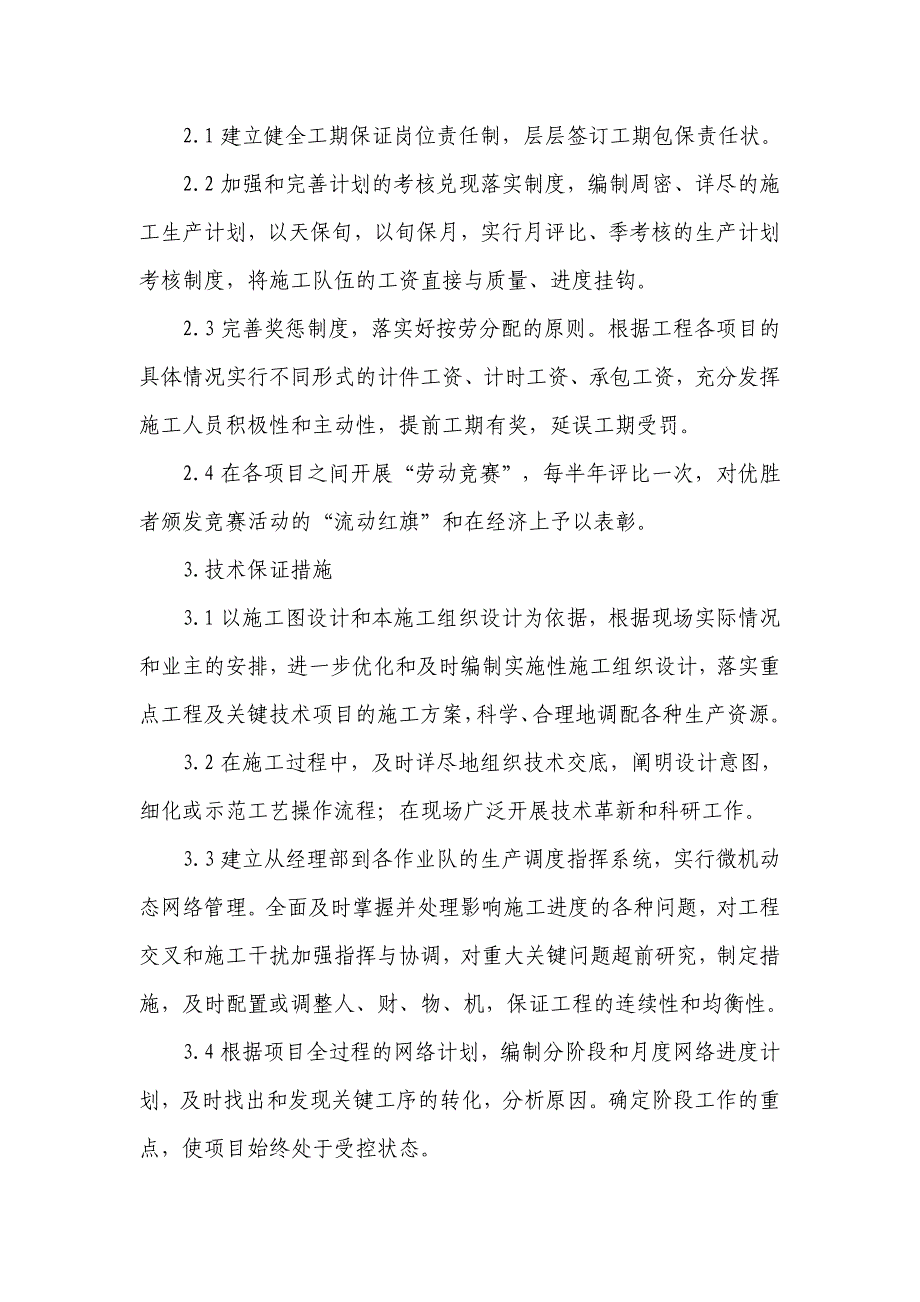 2.1 建立健全工期保证岗位责任制，层层签订工期包保责任状。
2.2 加强和完善计划的考核兑现落实制度，编制周密、详尽的施
工生产计划，以天保旬，以旬保月，实行月评比、季考核的生产计划
考核制度，将施工队伍的工资直接与质量、进度挂钩。
2.3 完善奖惩制度，落实好按劳分配的原则。根据工程各项目的
具体情况实行不同形式的计件工资、计时工资、承包工资，充分发挥
施工人员积极性和主动性，提前工期有奖，延误工期受罚。
2.4 在各项目之间开展“劳动竞赛”，每半年评比一次，对优胜
者颁发竞赛活动的“流动红旗”和在经济上予以表彰。
3.技术保证措施
3.1 以施工图设计和本施工组织设计为依据，根据现场实际情况
和业主的安排，进一步优化和及时编制实施性施工组织设计，落实重
点工程及关键技术项目的施工方案，科学、合理地调配各种生产资源。
3.2 在施工过程中，及时详尽地组织技术交底，阐明设计意图，
细化或示范工艺操作流程；在现场广泛开展技术革新和科研工作。
3.3 建立从经理部到各作业队的生产调度指挥系统，实行微机动
态网络管理。全面及时掌握并处理影响施工进度的各种问题，对工程
交叉和施工干扰加强指挥与协调，对重大关键问题超前研究，制定措
施，及时配置或调整人、财、物、机，保证工程的连续性和均衡性。
3.4 根据项目全过程的网络计划，编制分阶段和月度网络进度计
划，及时找出和发现关键工序的转化，分析原因。确定阶段工作的重
点，使项目始终处于受控状态。